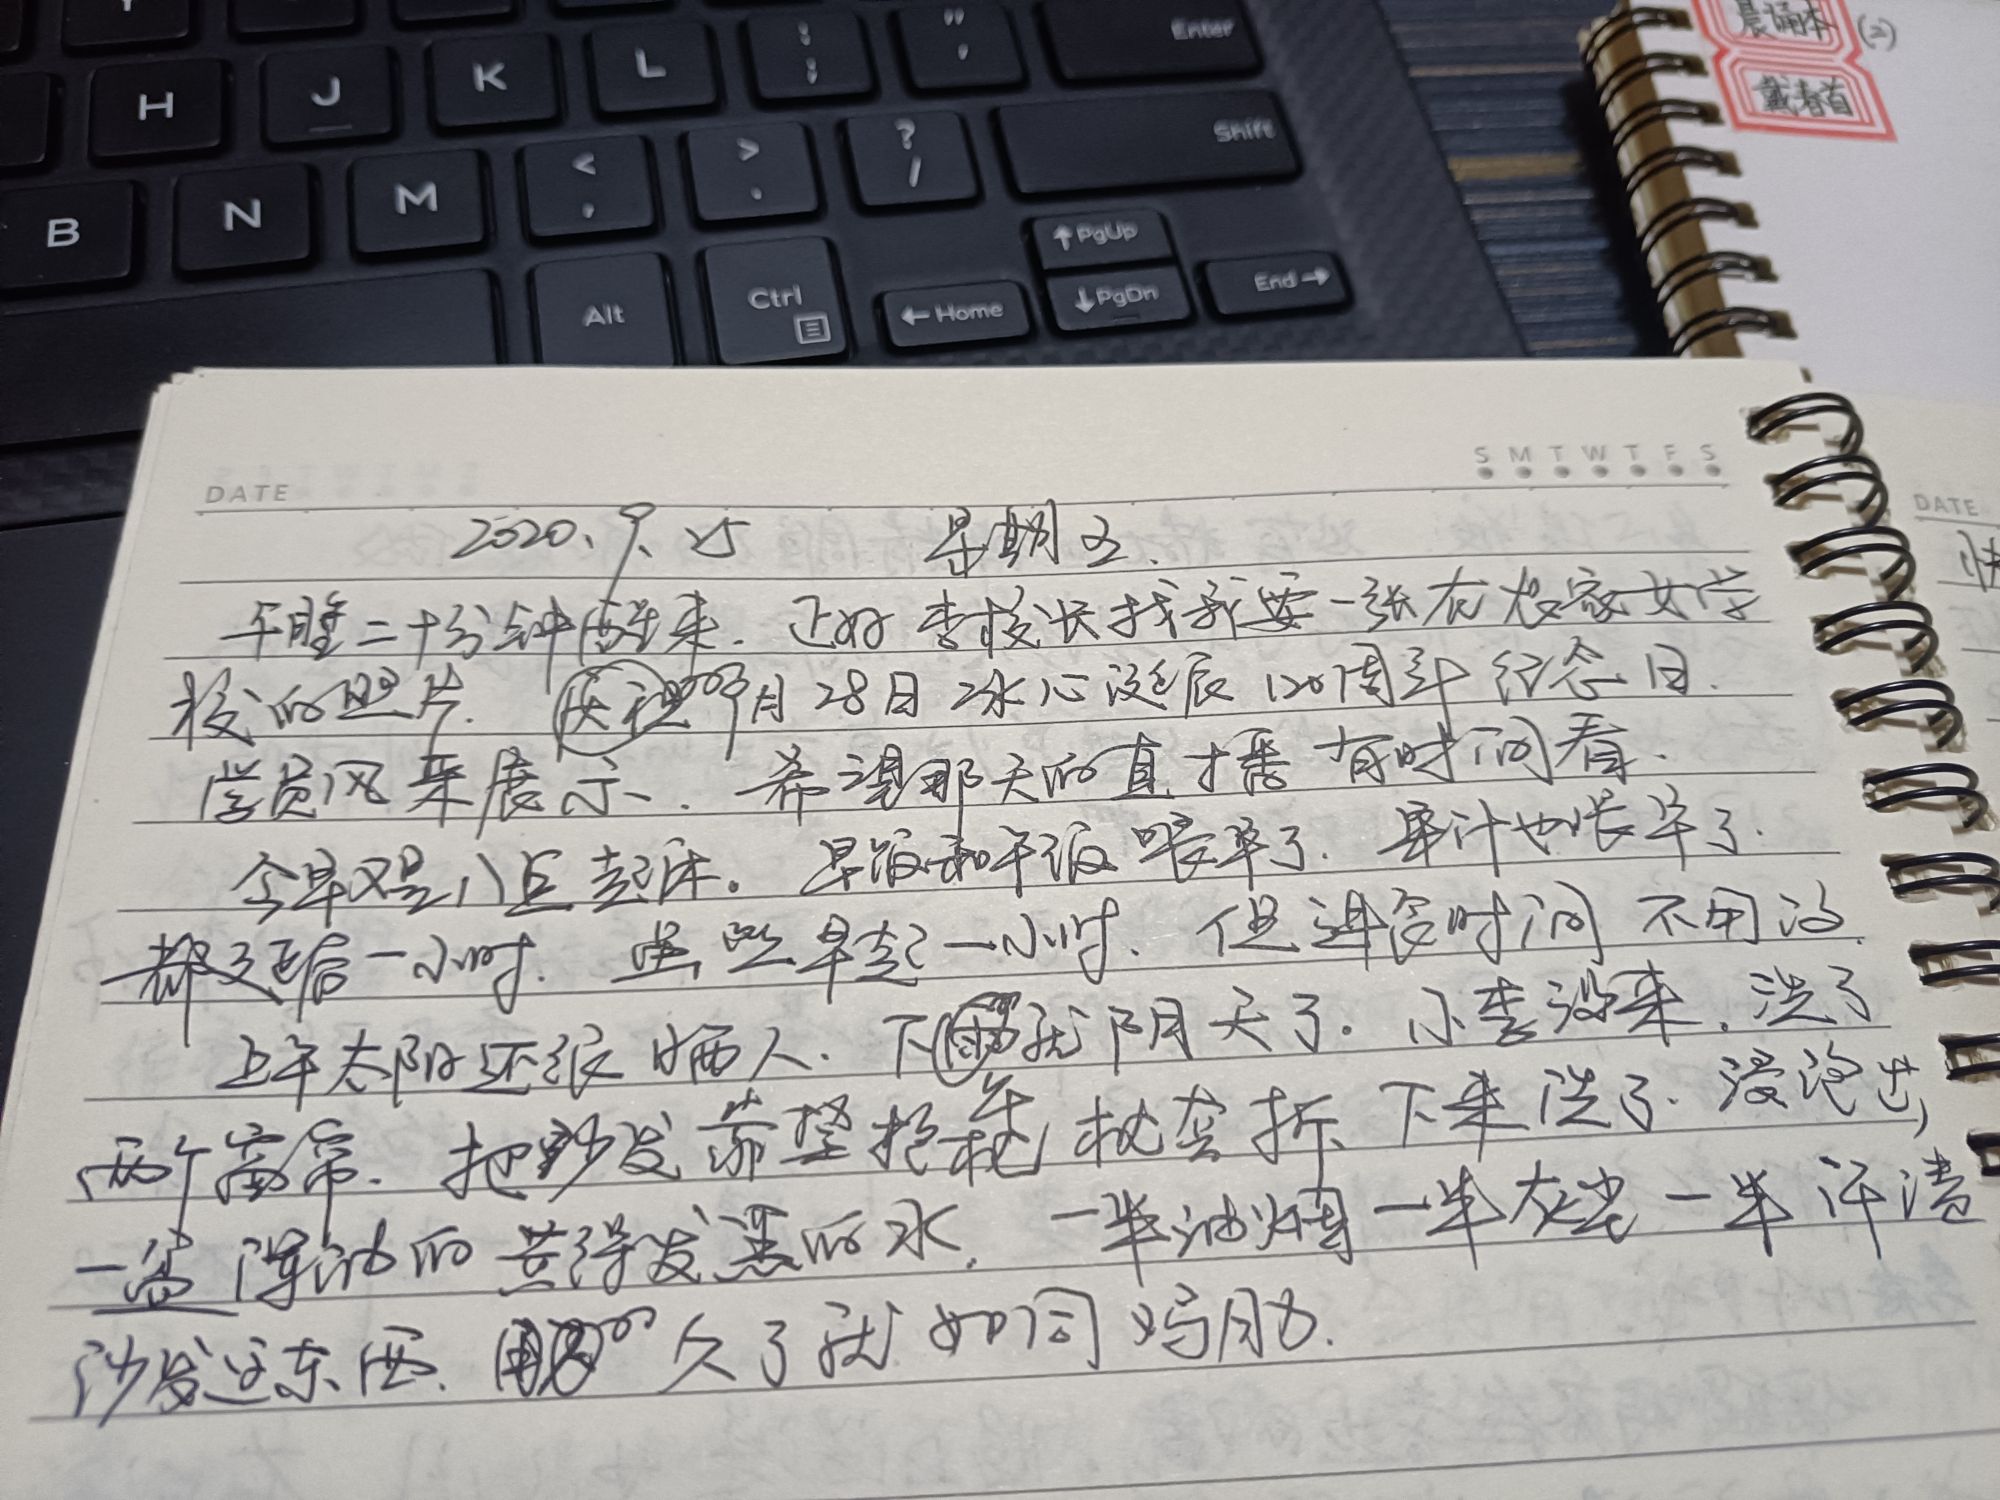 Enter
H J K L : ; " ,
Shift
B N M < , > . ? /
Alt Ctrl ←Home ↑PgUp ↓PgDn End→
晨诵本 (二)
戴春首
S M T W T F S
DATE
DATE
2020.9.25 星期五.
午睡二十分钟醒来. 正好李校长找我要一张在农家女学
校的照片. 9月28日冰心诞辰120周年纪念日.
学员风采展示. 希望那天的直播有时间看.
今早又是八点起床. 早饭和午饭喂早了. 果汁也
都延后一小时. 早起一小时. 但进食时间不用改.
上午太阳还很晒人. 下午就阴天了. 小李没来. 洗了
两个窗帘. 把沙发靠垫抱枕枕套拆下来洗了. 浸泡出
一盆浑浊的黄得发黑的水. 一半油烟一半灰尘一半汗渍
沙发这东西. 用久了就如同